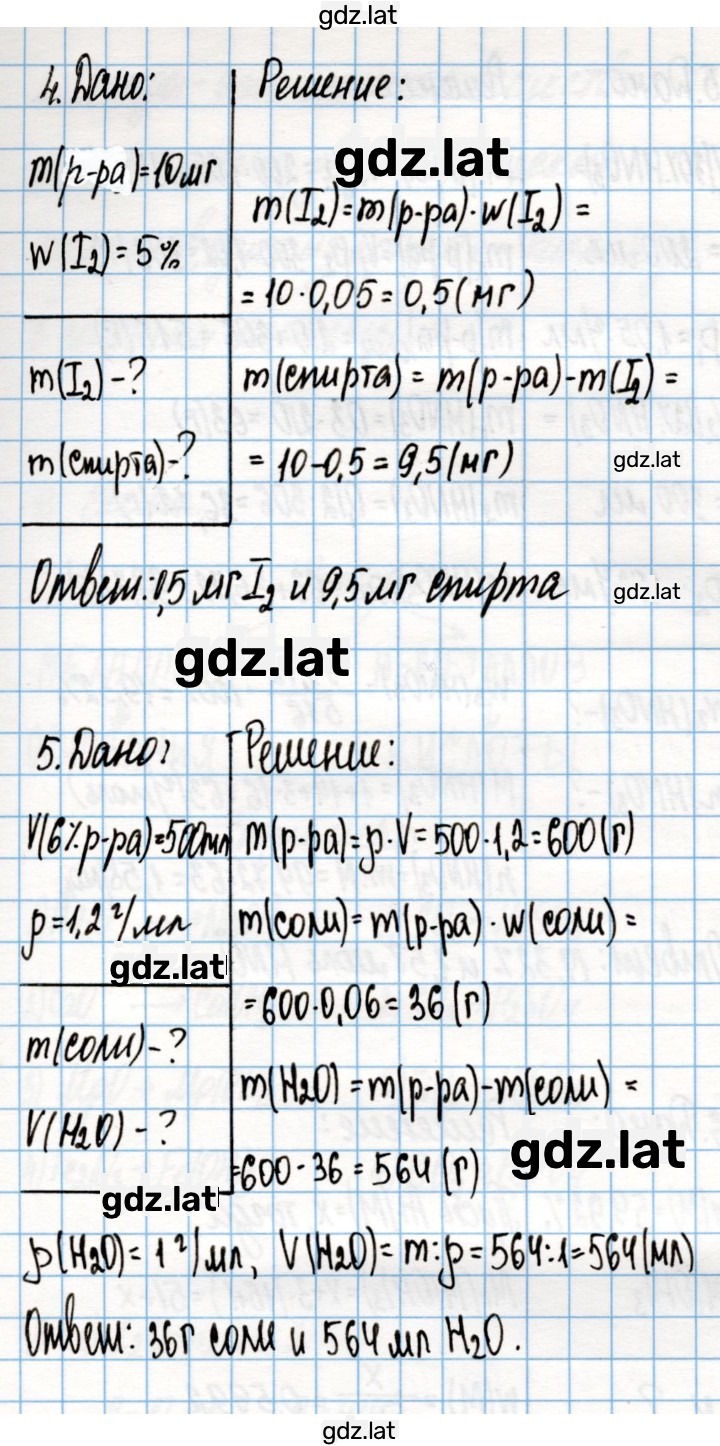 gdz.lat
4. Дано:
Решение:
gdz.lat
m(р-ра)=10мг
m(I₂)=m(р-ра)·w(I₂) =
w(I₂)=5%
=10·0,05=0,5(мг)
m(I₂)-?
m(спирта)=m(р-ра)-m(I₂)=
m(спирта)-?
=10-0,5=9,5(мг)
gdz.lat
Ответ: 0,5 мг I₂ и 9,5 мг спирта
gdz.lat
gdz.lat
5. Дано:
Решение:
V(6% р-ра)=500мл
m(р-ра)=ρ·V=500·1,2=600(г)
ρ=1,2 г/мл
m(соли)=m(р-ра)·w(соли)=
gdz.lat
=600·0,06=36(г)
m(соли)-?
m(H₂O)=m(р-ра)-m(соли)=
V(H₂O)-?
gdz.lat
=600-36=564(г)
gdz.lat
ρ(H₂O)=1 г/мл, V(H₂O)=m:ρ=564:1=564(мл)
Ответ: 36г соли и 564 мл H₂O.
gdz.lat